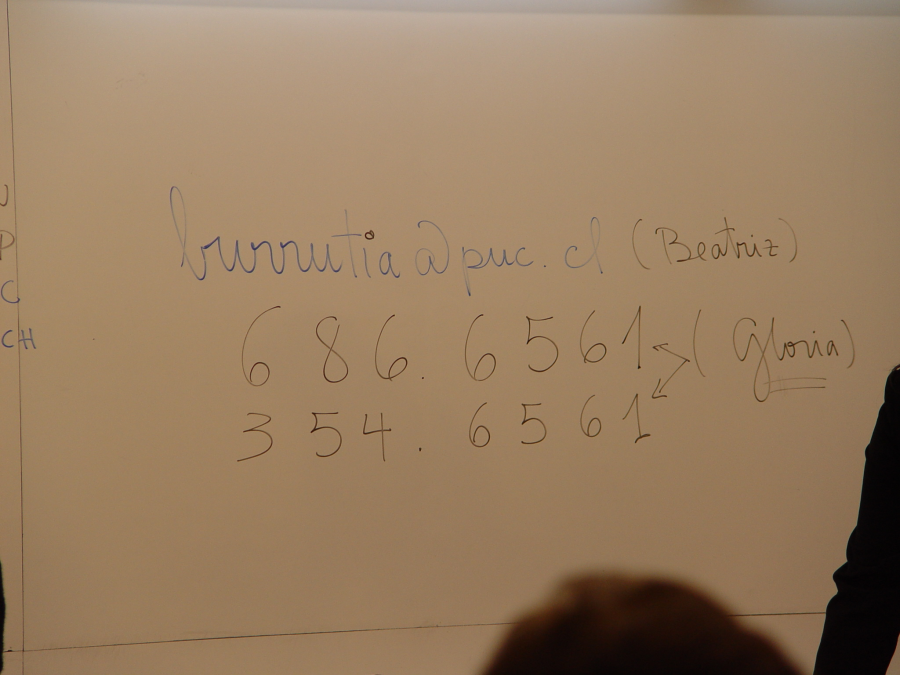 U
P
C
CH
burrutia@puc.cl (Beatriz)
686.6561 (Gloria)
354.6561